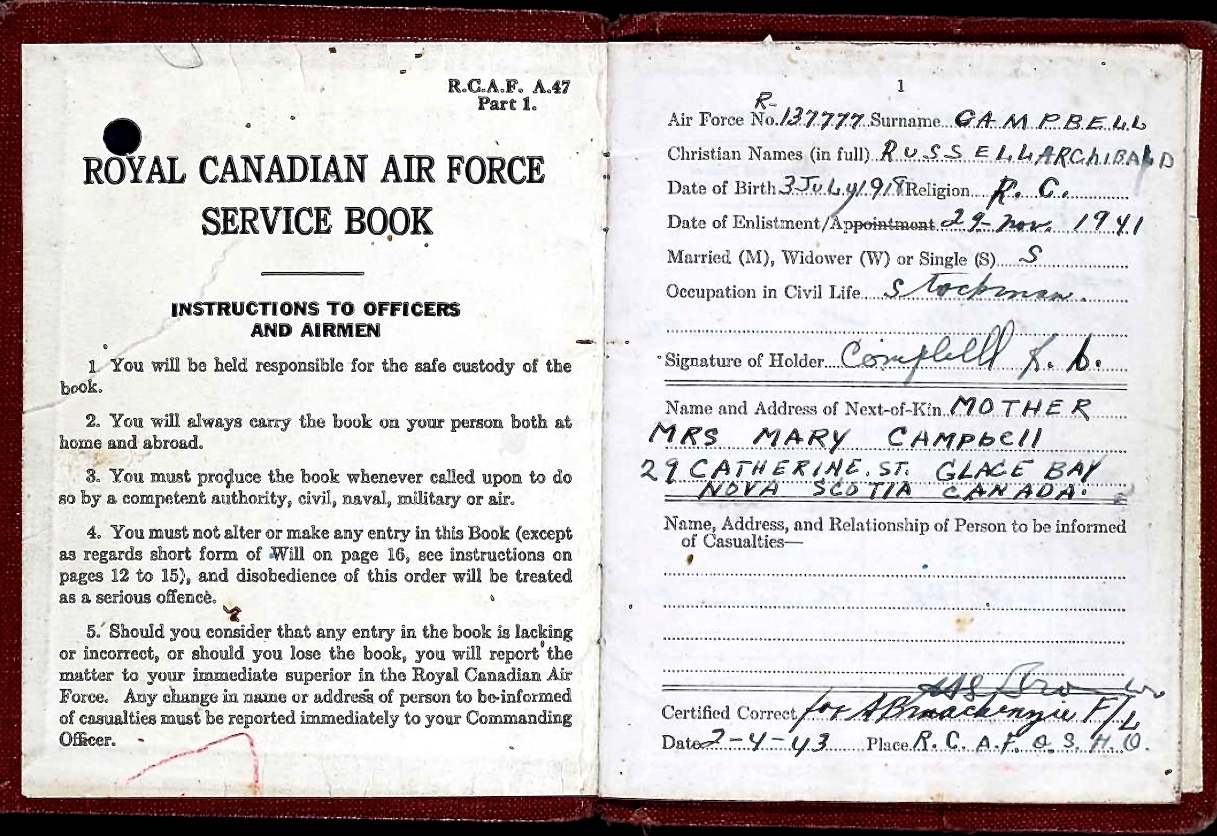 R.C.A.F. A.47
Part 1.
ROYAL CANADIAN AIR FORCE
SERVICE BOOK
INSTRUCTIONS TO OFFICERS
AND AIRMEN
1. You will be held responsible for the safe custody of the
book.
2. You will always carry the book on your person both at
home and abroad.
3. You must produce the book whenever called upon to do
so by a competent authority, civil, naval, military or air.
4. You must not alter or make any entry in this Book (except
as regards short form of Will on page 16, see instructions on
pages 12 to 15), and disobedience of this order will be treated
as a serious offence.
5. Should you consider that any entry in the book is lacking
or incorrect, or should you lose the book, you will report the
matter to your immediate superior in the Royal Canadian Air
Force. Any change in name or address of person to be informed
of casualties must be reported immediately to your Commanding
Officer.
1
Air Force No. R-137777 Surname CAMPBELL
Christian Names (in full) RUSSELL ARCHIBALD
Date of Birth 3 July 1918 Religion R. C.
Date of Enlistment/Appointment 29- Nov. 1941
Married (M), Widower (W) or Single (S) S
Occupation in Civil Life Stockman.
Signature of Holder Campbell
Name and Address of Next-of-Kin MOTHER
MRS MARY CAMPbell
29 CATHERINE. ST. GLACE BAY
NOVA SCOTIA CANADA.
Name, Address, and Relationship of Person to be informed
of Casualties—
Certified Correct for A B Mackenzie F/L
Date 2-4-43 Place R. C. A. F. O. S. H. Q.